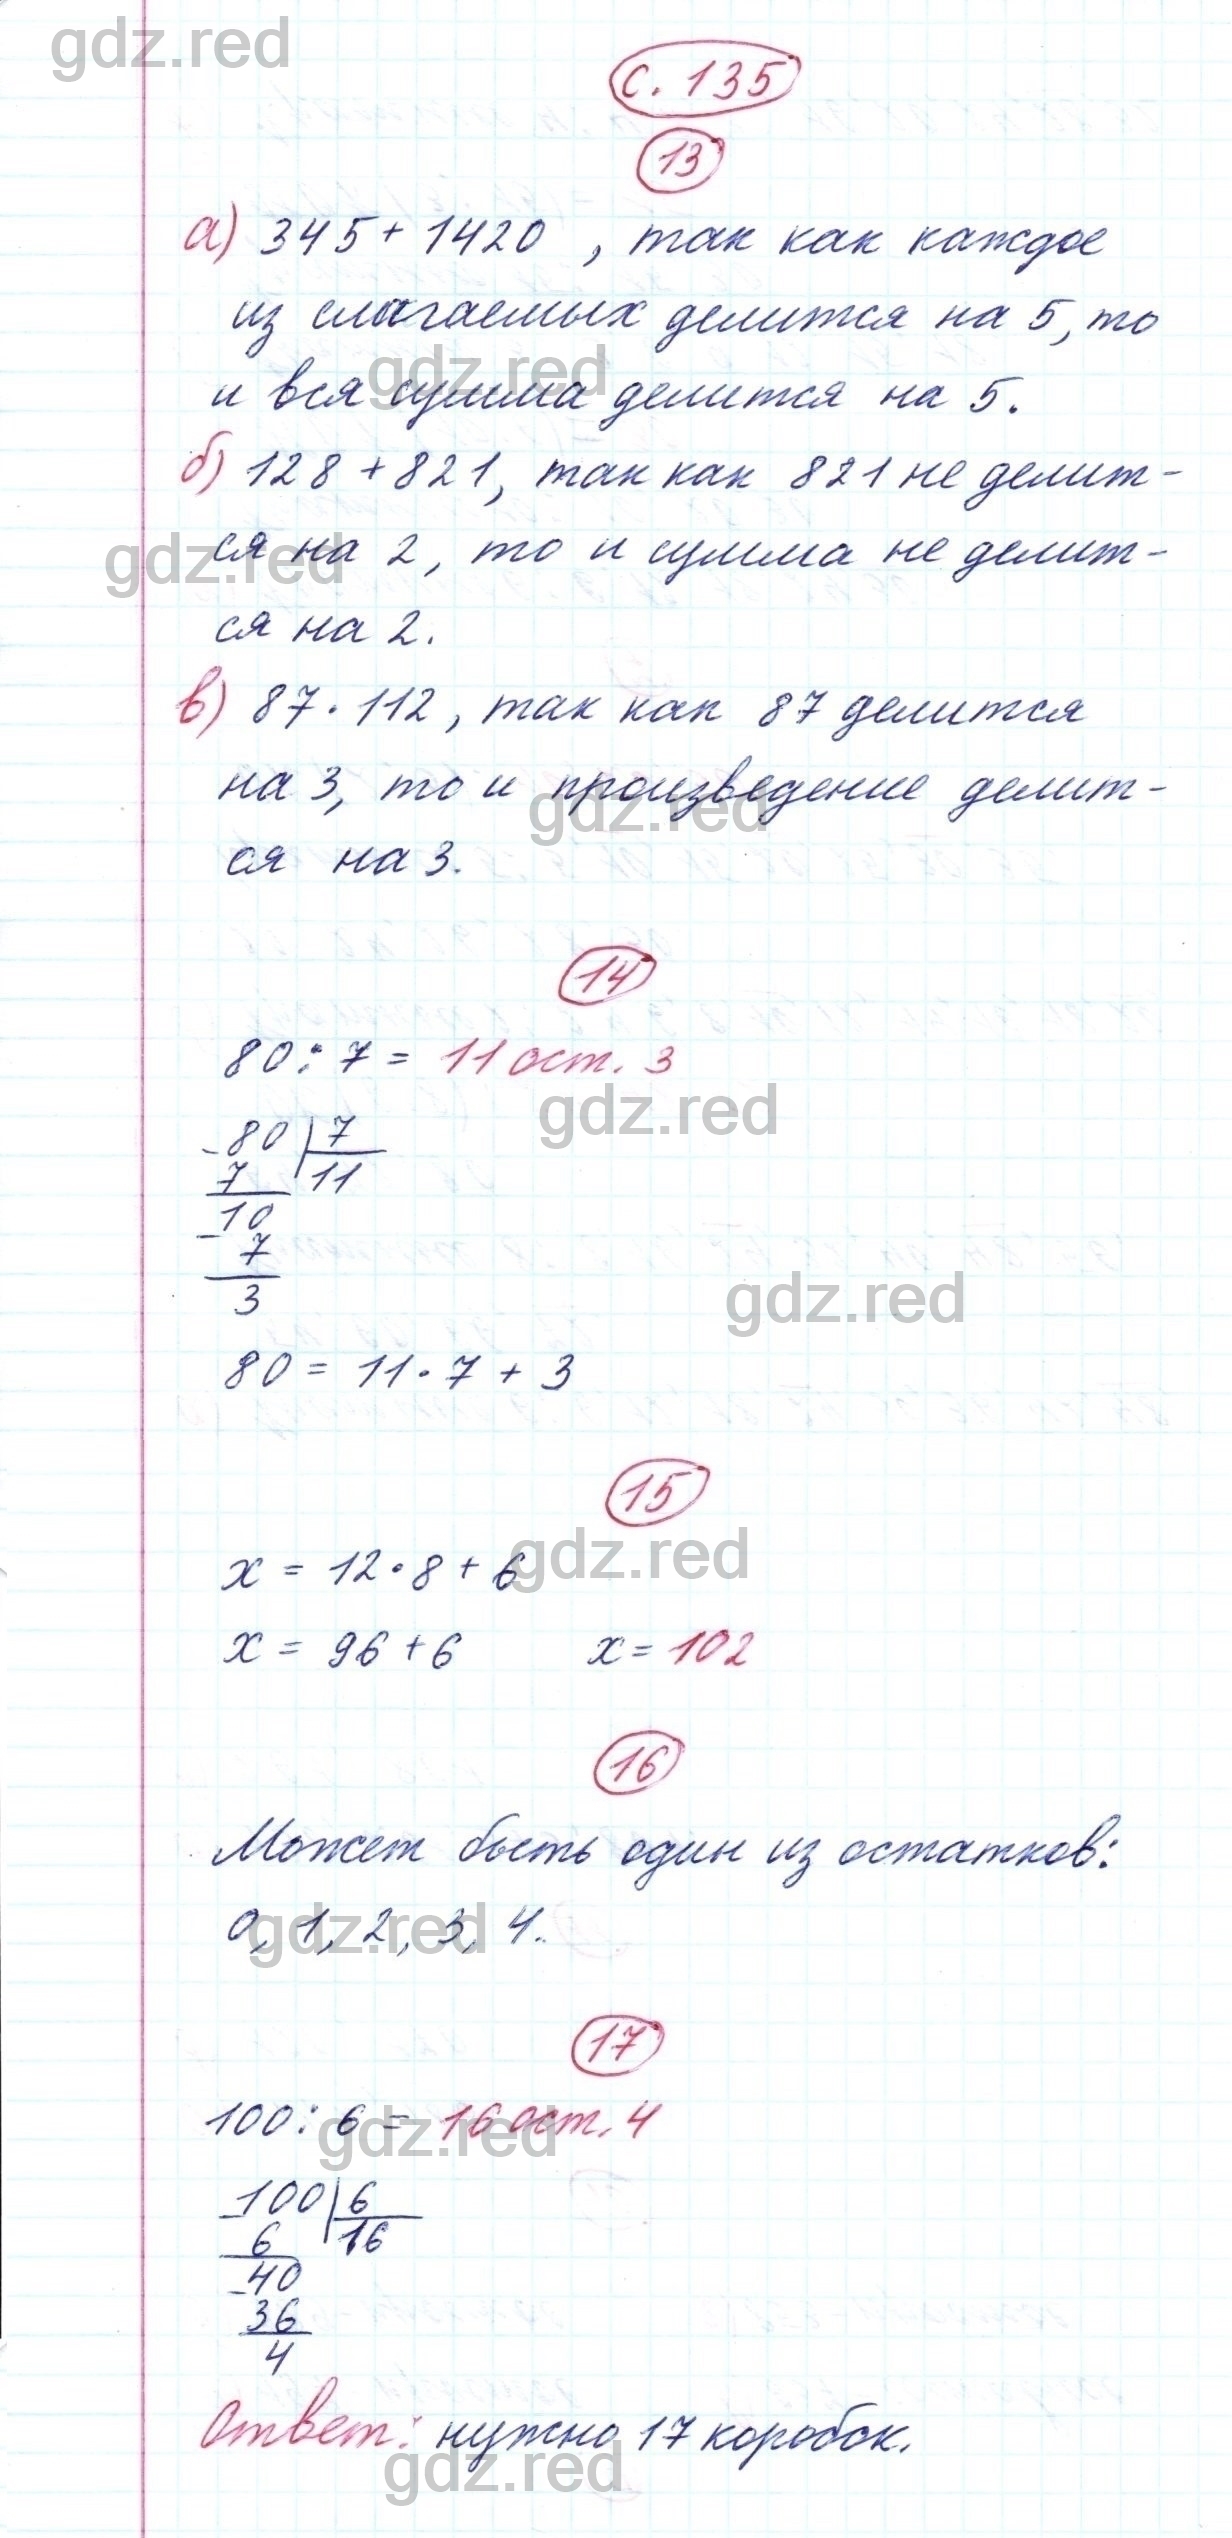 gdz.red
с. 135
13
а) 345 + 1420 , так как каждое
из слагаемых делится на 5, то
gdz.red
и вся сумма делится на 5.
б) 128 + 821, так как 821 не делит-
gdz.red
ся на 2, то и сумма не делит-
ся на 2.
в) 87 · 112, так как 87 делится
на 3, то и произведение делит-
gdz.red
ся на 3.
14
80 : 7 = 11 ост. 3
gdz.red
- 80 | 7
7 11
- 10
7
3
gdz.red
80 = 11 · 7 + 3
15
gdz.red
x = 12 · 8 + 6
x = 96 + 6 x = 102
16
Может быть один из остатков:
gdz.red
0, 1, 2, 3, 4.
17
100 : 6 = 16 ост. 4
gdz.red
- 100 | 6
6 16
- 40
36
4
Ответ: нужно 17 коробок.
gdz.red